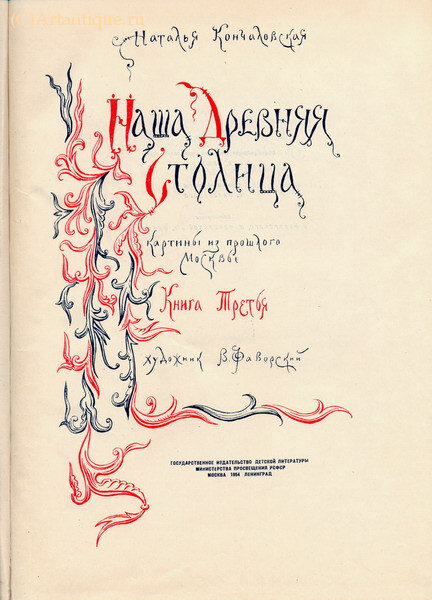 (C)Artantique.ru
Наталья Кончаловская
Наша Древняя
Столица
картины из прошлого
Москвы
Книга Третья
художник В. Фаворский
ГОСУДАРСТВЕННОЕ ИЗДАТЕЛЬСТВО ДЕТСКОЙ ЛИТЕРАТУРЫ
МИНИСТЕРСТВА ПРОСВЕЩЕНИЯ РСФСР
МОСКВА 1954 ЛЕНИНГРАД